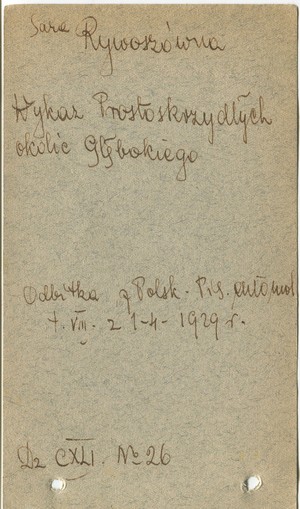 Sara Rywoszówna
Wykaz Prostoskrzydłych
okolic Głębokiego
Odbitka z Polsk. Pis. entomol.
t. VIII. z 1-4 - 1929 r.
Dz CXLI. No 26